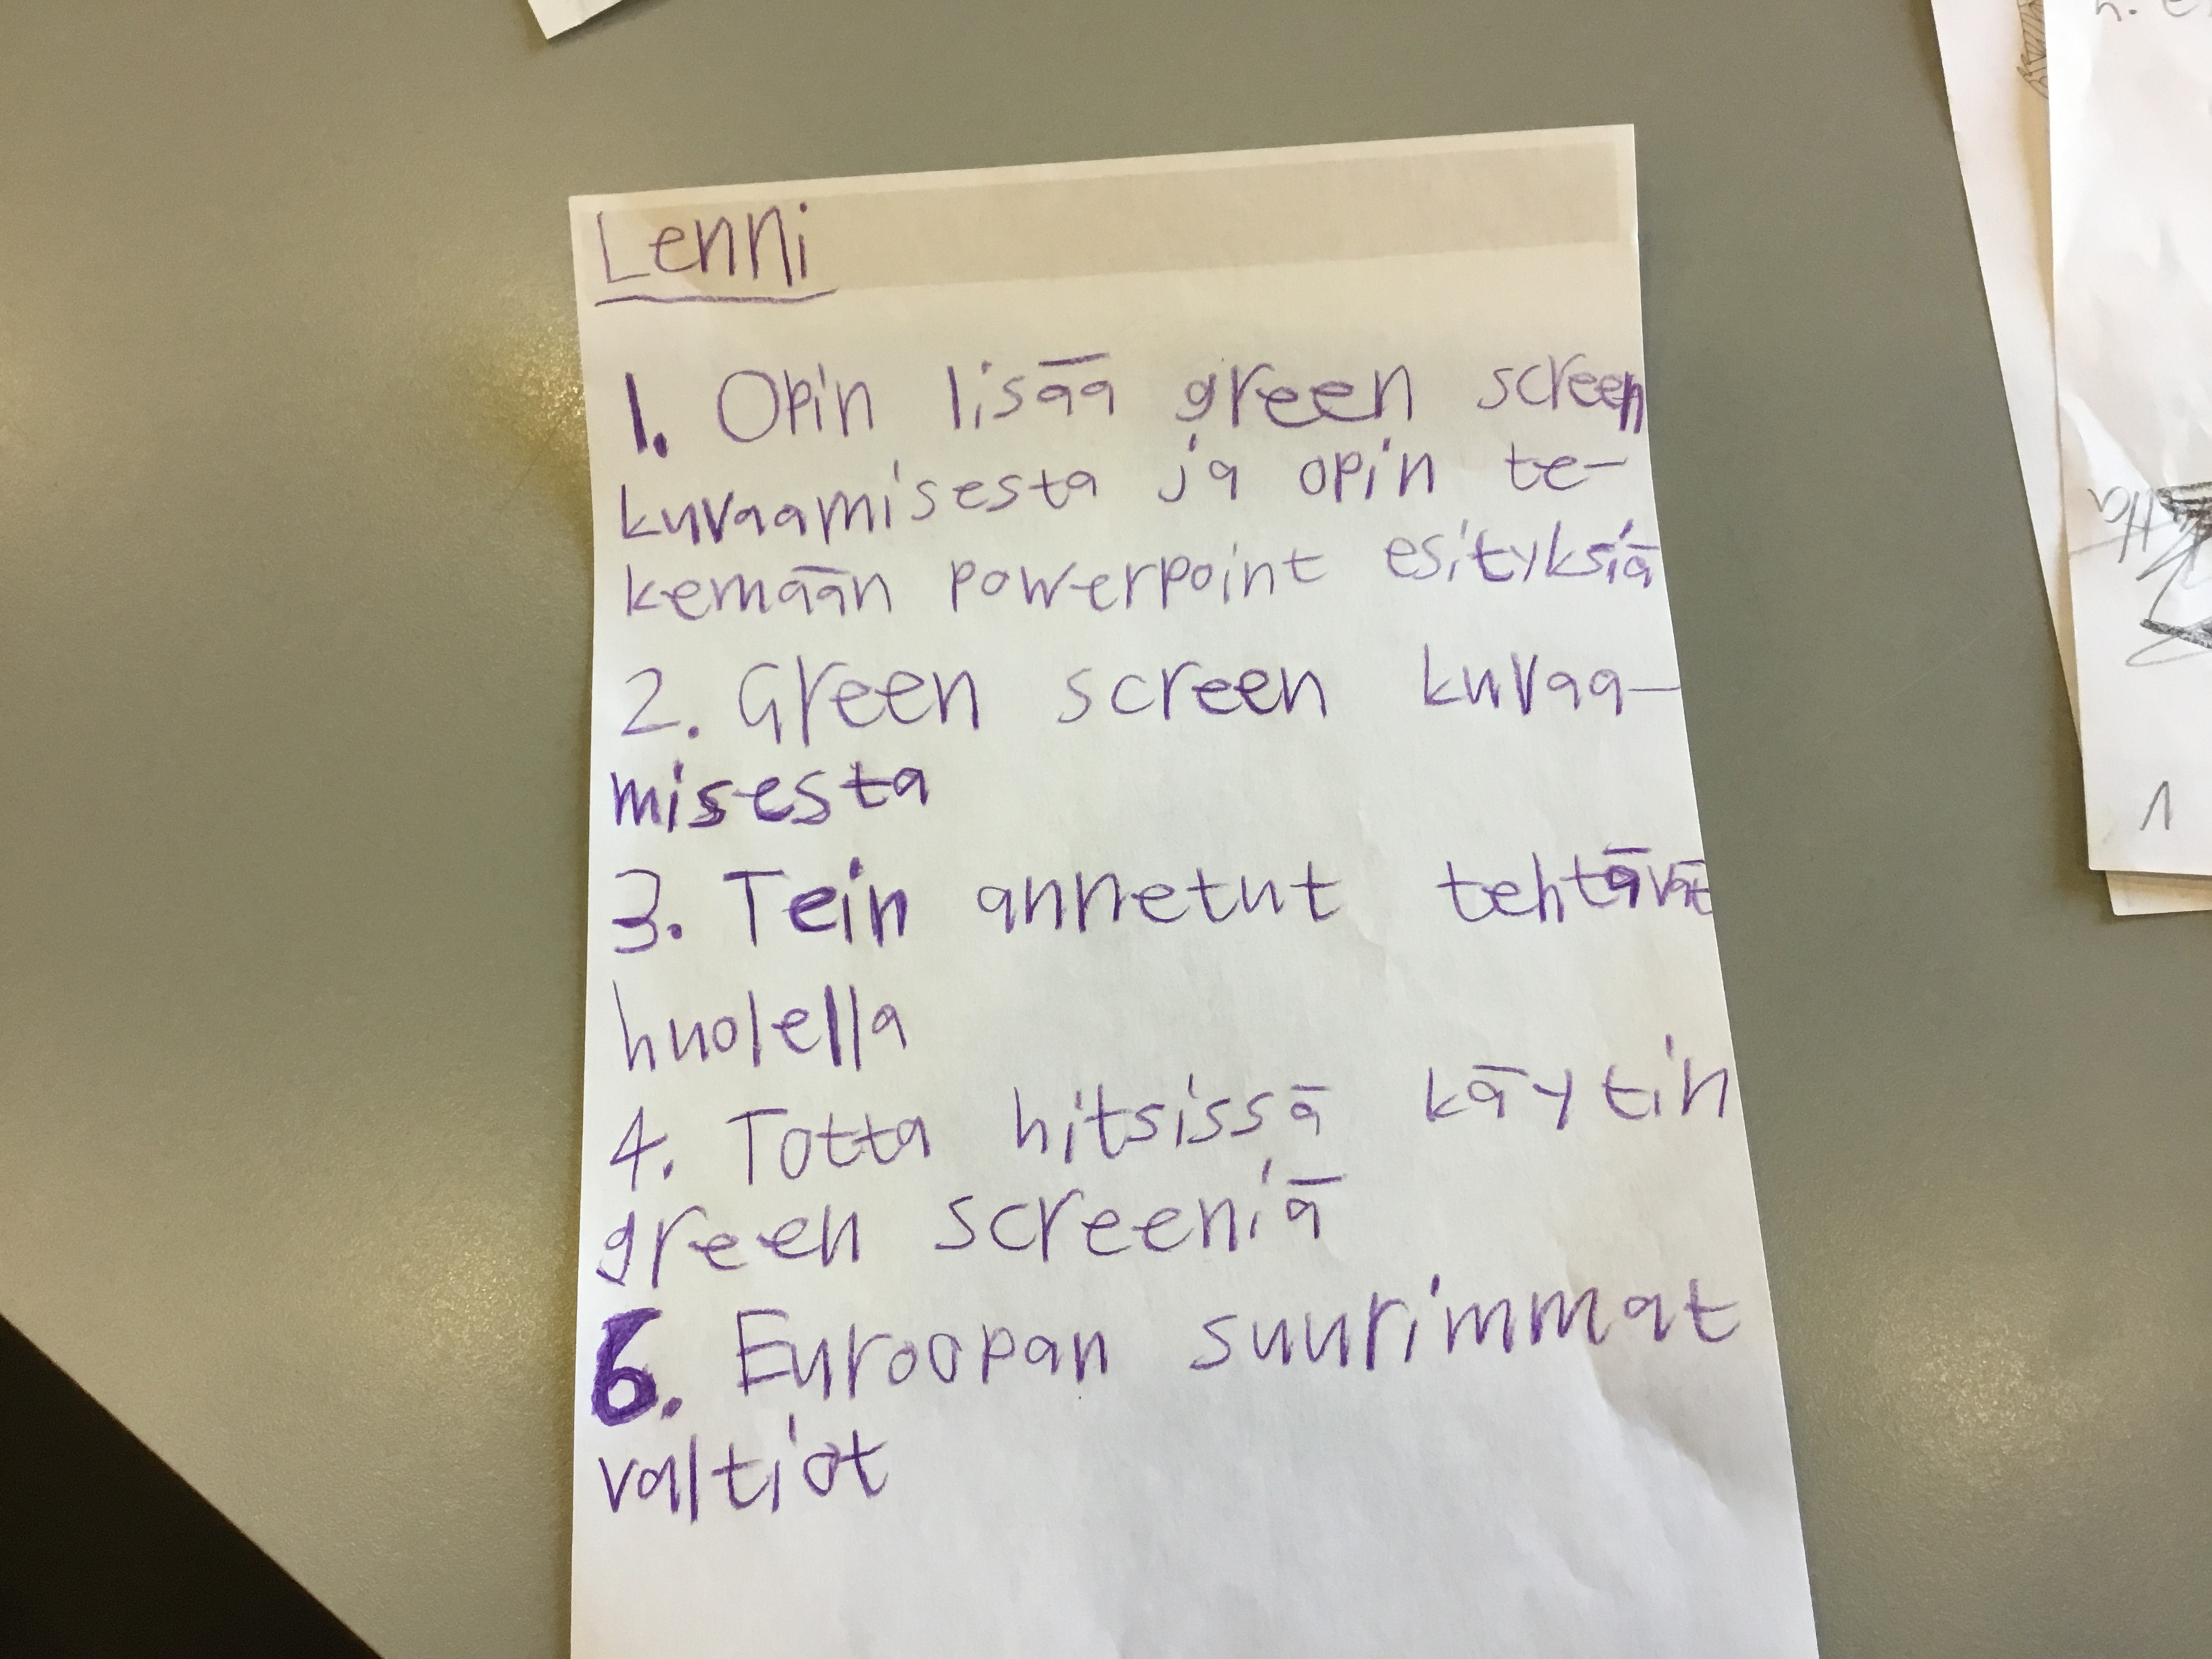 Lenni
1. Opin lisää green screen
kuvaamisesta ja opin te-
kemään powerpoint esityksiä
2. Green screen kuvaa-
misesta
3. Tein annetut tehtävät
huolella
4. Totta hitsissä käytin
green screeniä
6. Euroopan suurimmat
valtiot